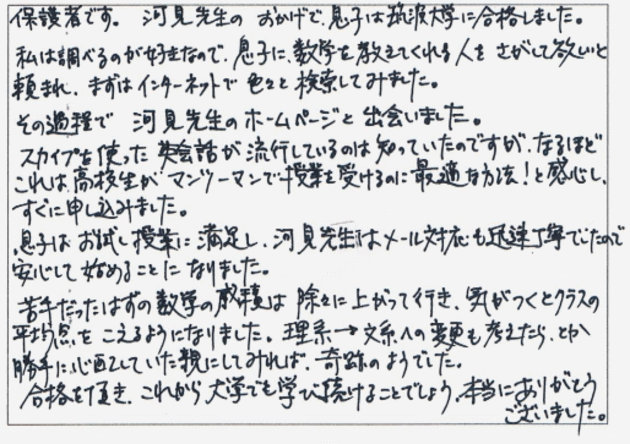 保護者です。 河見先生の おかげで、息子は筑波大学に合格しました。
私は調べるのが好きなので、息子に、数学を教えてくれる人を さがして欲しいと
頼まれ、まずはインターネットで 色々と 検索してみました。
その過程で 河見先生のホームページと 出会いました。
スカイプを使った 英会話が 流行しているのは 知っていたのですが、なるほど
これは、高校生が マンツーマンで 授業を受けるのに 最適な方法!と感心し、
すぐに申し込みました。
息子は お試し授業に 満足し、河見先生はメール対応も迅速丁寧でしたので
安心して 始めることに なりました。
苦手だったはずの数学の成績は 除々に上がって行き、気がつくとクラスの
平均点を こえるようになりました。理系→文系への変更も考えたら、とか
勝手に心配していた親にしてみれば、奇跡のようでした。
合格を頂き、これから 大学でも学び続けることでしょう。本当にありがとう
ございました。